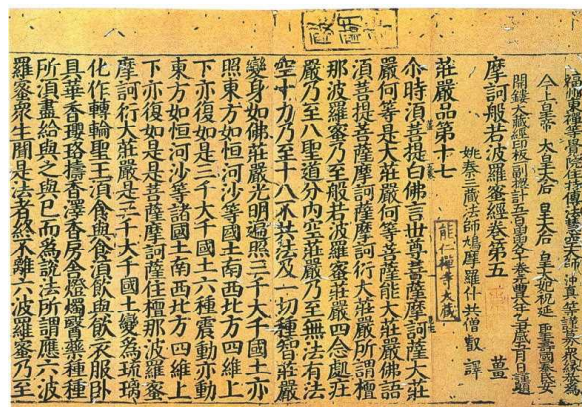 福州東禪等覺院住持傳法慧空大師 沖真 等謹募眾緣恭為
今上皇帝 太皇太后 皇太后 皇太妃祝延 聖壽國泰民安
開鏤大藏經印板一副計五百 元豐 年 歲五月日謹題
摩訶般若波羅蜜經卷第五 薑
姚秦三藏法師鳩摩羅什共僧叡 譯
能仁禪寺大藏
莊嚴品第十七
尒時須菩提白佛言世尊菩薩摩訶薩大莊
嚴何等是大莊嚴何等菩薩能大莊嚴佛語
須菩提菩薩摩訶薩摩訶衍大莊嚴所謂檀
那波羅蜜乃至般若波羅蜜莊嚴四念處莊
嚴乃至八聖道分內空莊嚴乃至無法有法
空十力乃至十八不共法及一切種智莊嚴
變身如佛莊嚴光明遍照三千大千國土亦
照東方如恒河沙等國土南西北方四維上
下亦復如是三千大千國土六種震動亦動
東方如恒河沙等諸國土南西北方四維上
下亦復如是是菩薩摩訶薩住檀那波羅蜜
摩訶衍大莊嚴是三千大千國土變為琉璃
化作轉輪聖王須食與食須飲與飲衣服臥
具華香瓔珞擣香澤香房舍燈燭醫藥種種
所須盡給與之與已而為說法所謂應六波
羅蜜眾生聞是法者終不離六波羅蜜乃至